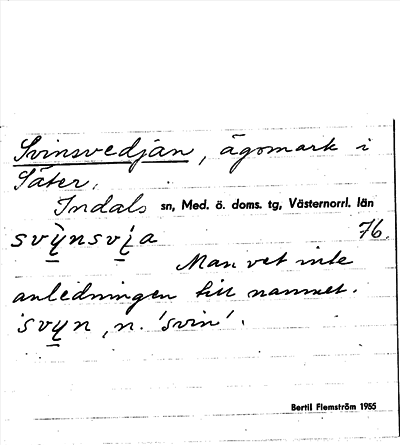 Svinsvedjan, ägomark i
Säter,
Indals sn, Med. ö. doms. tg, Västernorrl. län
svy̠nsvi̠a 76.
Man vet inte
anledningen till namnet.
svy̠n, n. 'svin'.
Bertil Flemström 1955